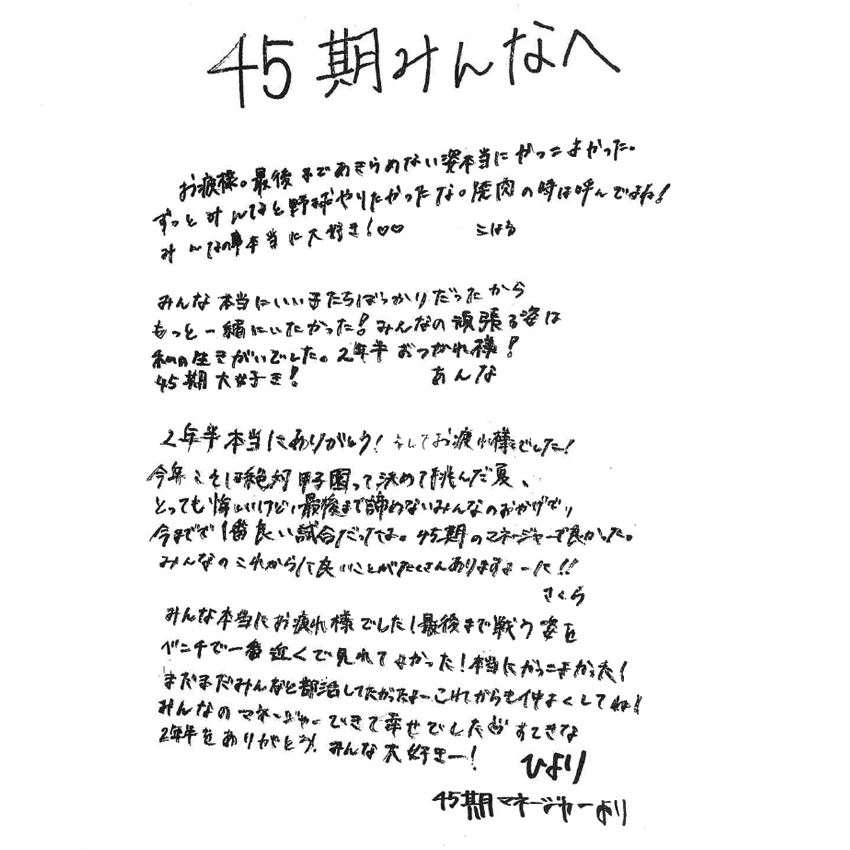 45期みんなへ
お疲様。最後まであきらめない姿本当にかっこよかった。
ずっとみんなと野球やりたかったな。焼肉の時は呼んでよね!
みんなの事本当に大好き!♡♡ こはる
みんな本当にいい子たちばっかりだったから
もっと一緒にいたかった!みんなの頑張る姿は
私の生きがいでした。2年半おつかれ様!
45期大好き! あんな
2年半本当にありがとう!そしてお疲れ様でした!
今年こそは絶対甲子園って決めて挑んだ夏、
とっても悔しいけど、最後まで諦めないみんなのおかげで、
今までで1番良い試合だったよ。45期のマネージャーで良かった。
みんなのこれからに良いことがたくさんありますように!!
さくら
みんな本当にお疲れ様でした!最後まで戦う姿を
ベンチで一番近くで見れてよかった!本当にかっこよかった!
まだまだみんなと部活してたかったよーこれからも仲よくしてね!
みんなのマネージャーできて幸せでした すてきな
2年半をありがとう!みんな大好きー! ひより
45期マネージャーより